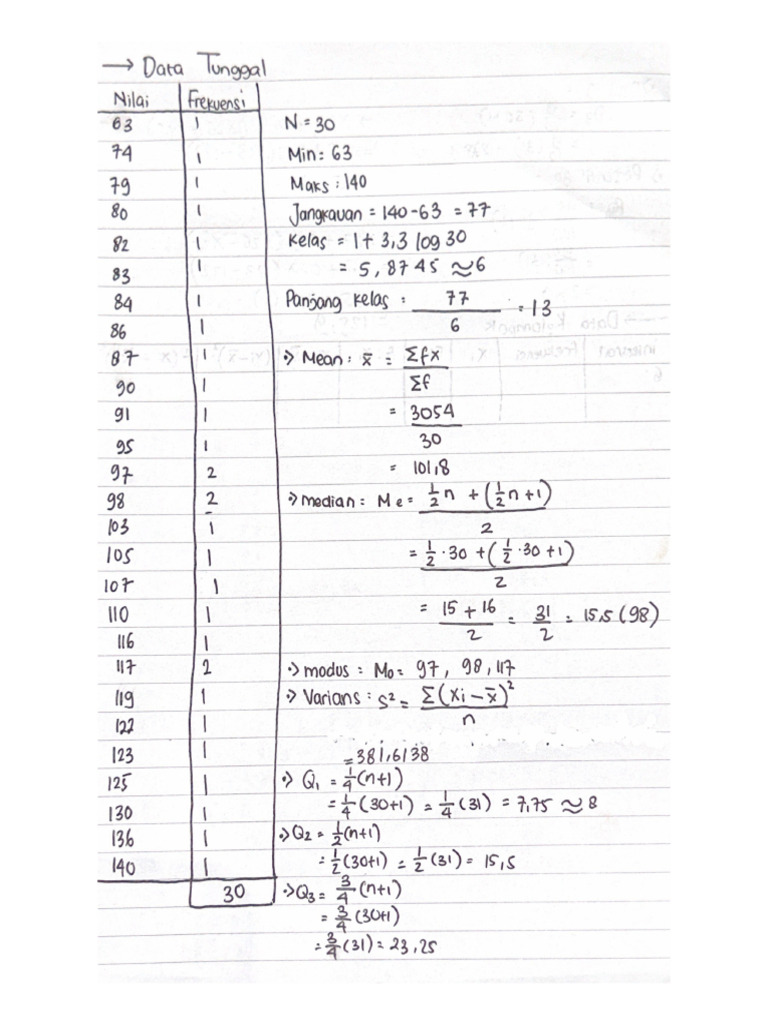 → Data Tunggal
Nilai Frekuensi
63 1
74 1
79 1
80 1
82 1
83 1
84 1
86 1
87 1
90 1
91 1
95 1
97 2
98 2
103 1
105 1
107 1
110 1
116 1
117 2
119 1
122 1
123 1
125 1
130 1
136 1
140 1
30
N = 30
Min : 63
Maks : 140
Jangkauan = 140 - 63 = 77
Kelas = 1 + 3,3 log 30
= 5,8745 ≈ 6
Panjang kelas : 77 / 6 = 13
Mean : x̄ = Σfx / Σf
= 3054 / 30
= 101,8
median : Me = (1/2 n + (1/2 n + 1)) / 2
= (1/2 · 30 + (1/2 · 30 + 1)) / 2
= (15 + 16) / 2 = 31 / 2 = 15,5 (98)
modus : Mo = 97, 98, 117
Varians : s² = Σ(xi - x̄)² / n
= 381,6138
Q1 = 1/4 (n+1)
= 1/4 (30+1) = 1/4 (31) = 7,75 ≈ 8
Q2 = 1/2 (n+1)
= 1/2 (30+1) = 1/2 (31) = 15,5
Q3 = 3/4 (n+1)
= 3/4 (30+1)
= 3/4 (31) = 23,25